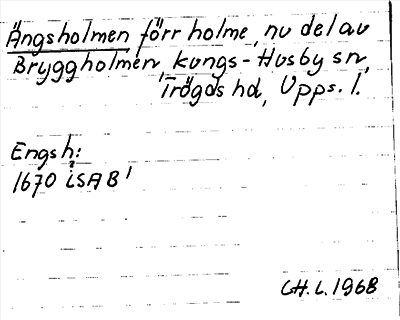 Ängsholmen förr holme, nu del av
Bryggholmen, Kungs-Husby sn,
Trögds hd, Upps. l.
Engsh:
1670 LSAB'
CH. L. 1968